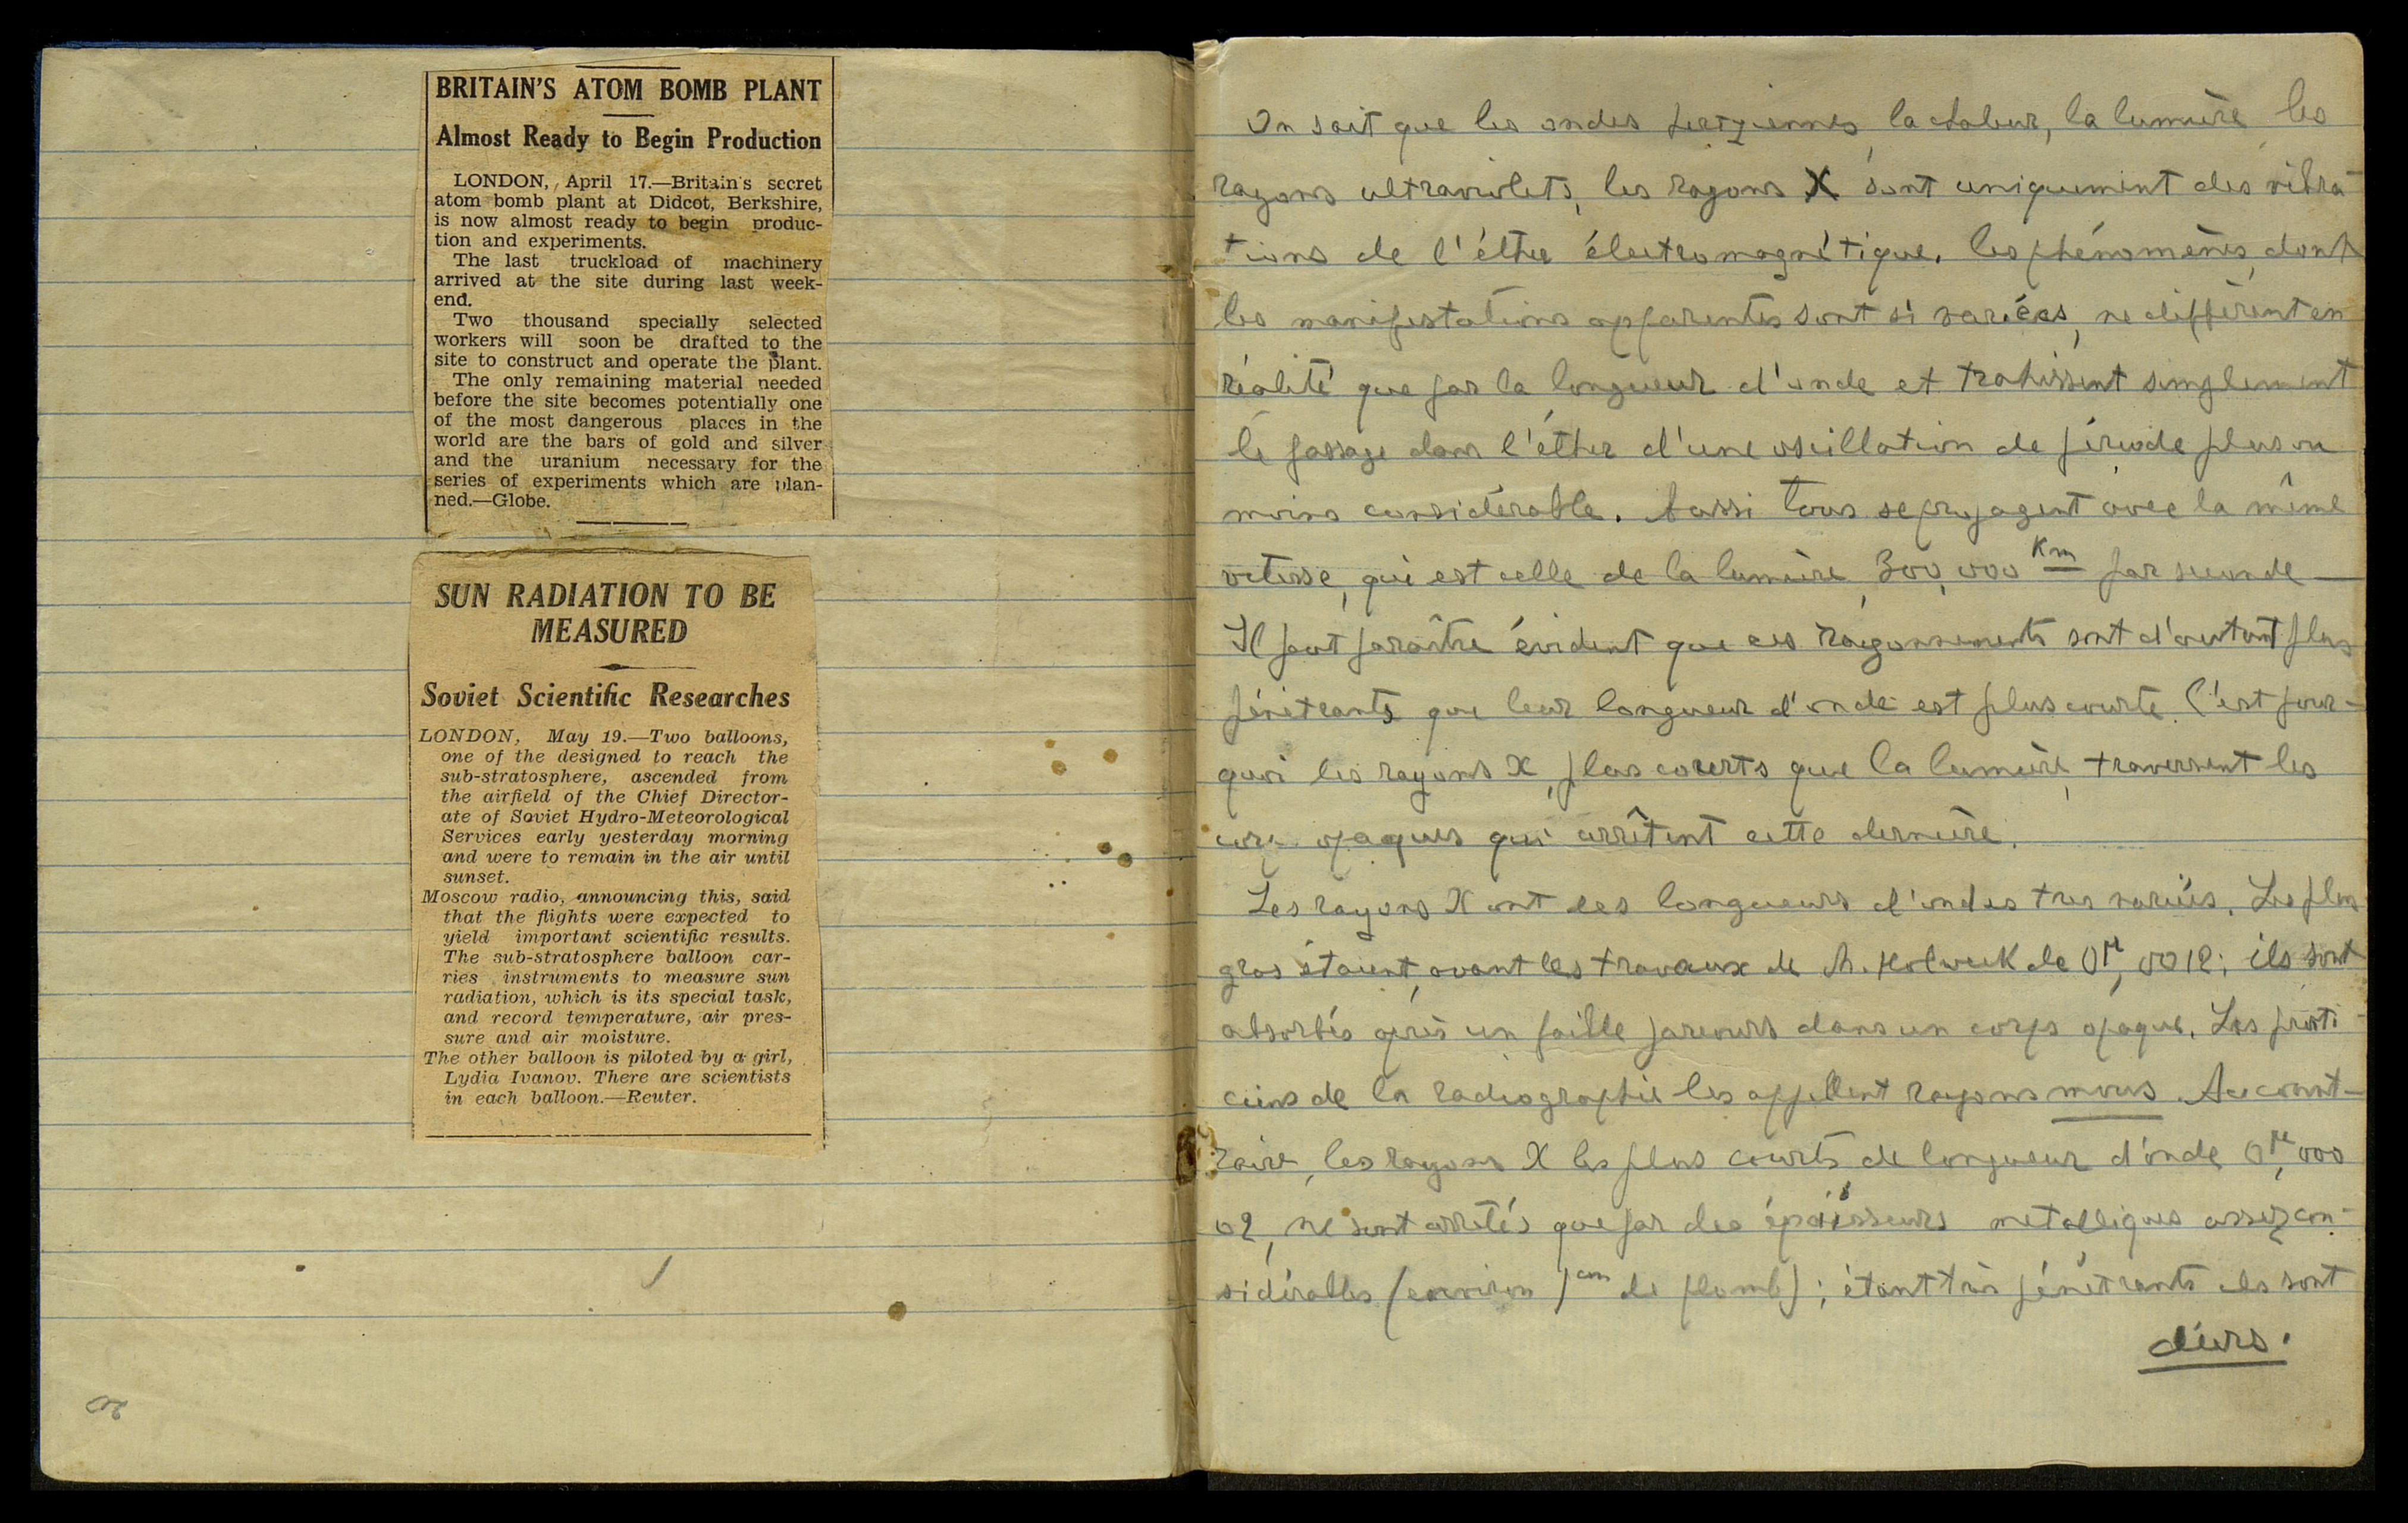 BRITAIN'S ATOM BOMB PLANT
Almost Ready to Begin Production
LONDON, April 17.—Britain's secret
atom bomb plant at Didcot, Berkshire,
is now almost ready to begin produc-
tion and experiments.
The last truckload of machinery
arrived at the site during last week-
end.
Two thousand specially selected
workers will soon be drafted to the
site to construct and operate the plant.
The only remaining material needed
before the site becomes potentially one
of the most dangerous places in the
world are the bars of gold and silver
and the uranium necessary for the
series of experiments which are plan-
ned.—Globe.
SUN RADIATION TO BE
MEASURED
Soviet Scientific Researches
LONDON, May 19.—Two balloons,
one of the designed to reach the
sub-stratosphere, ascended from
the airfield of the Chief Director-
ate of Soviet Hydro-Meteorological
Services early yesterday morning
and were to remain in the air until
sunset.
Moscow radio, announcing this, said
that the flights were expected to
yield important scientific results.
The sub-stratosphere balloon car-
ries instruments to measure sun
radiation, which is its special task,
and record temperature, air pres-
sure and air moisture.
The other balloon is piloted by a girl,
Lydia Ivanov. There are scientists
in each balloon.—Reuter.
On sait que les ondes hertziennes, la chaleur, la lumière, les
rayons ultraviolets, les rayons X sont uniquement des vibra-
tions de l'éther électromagnétique. les phénomènes, dont
les manifestations apparentes sont si variées, ne diffèrent en
réalité que par la longueur d'onde et trahissent simplement
le passage dans l'éther d'une oscillation de période plus ou
moins considérable. Aussi tous se propagent avec la même
vitesse, qui est celle de la lumière, 300,000 Km par seconde —
Il peut paraître évident que ces rayonnements sont d'autant plus
pénétrants que leur longueur d'onde est plus courte. C'est pour-
quoi les rayons X, plus courts que la lumière, traversent les
corps opaques qui arrêtent cette dernière.
Les rayons X ont des longueurs d'ondes tres variées. Les plus
gros étaient, avant les travaux de M. Holweck de 0μ, 0012; ils sont
absorbés après un faible parcours dans un corps opaque. Les prati-
ciens de la radiographie les appellent rayons mous. Au cont-
raire, les rayons X les plus courts, de longueur d'onde 0μ, 000
02, ne sont arretés que par des épaisseurs metalliques assez con-
sidérables (environ 1cm de plomb); étant très pénétrants ils sont
durs.